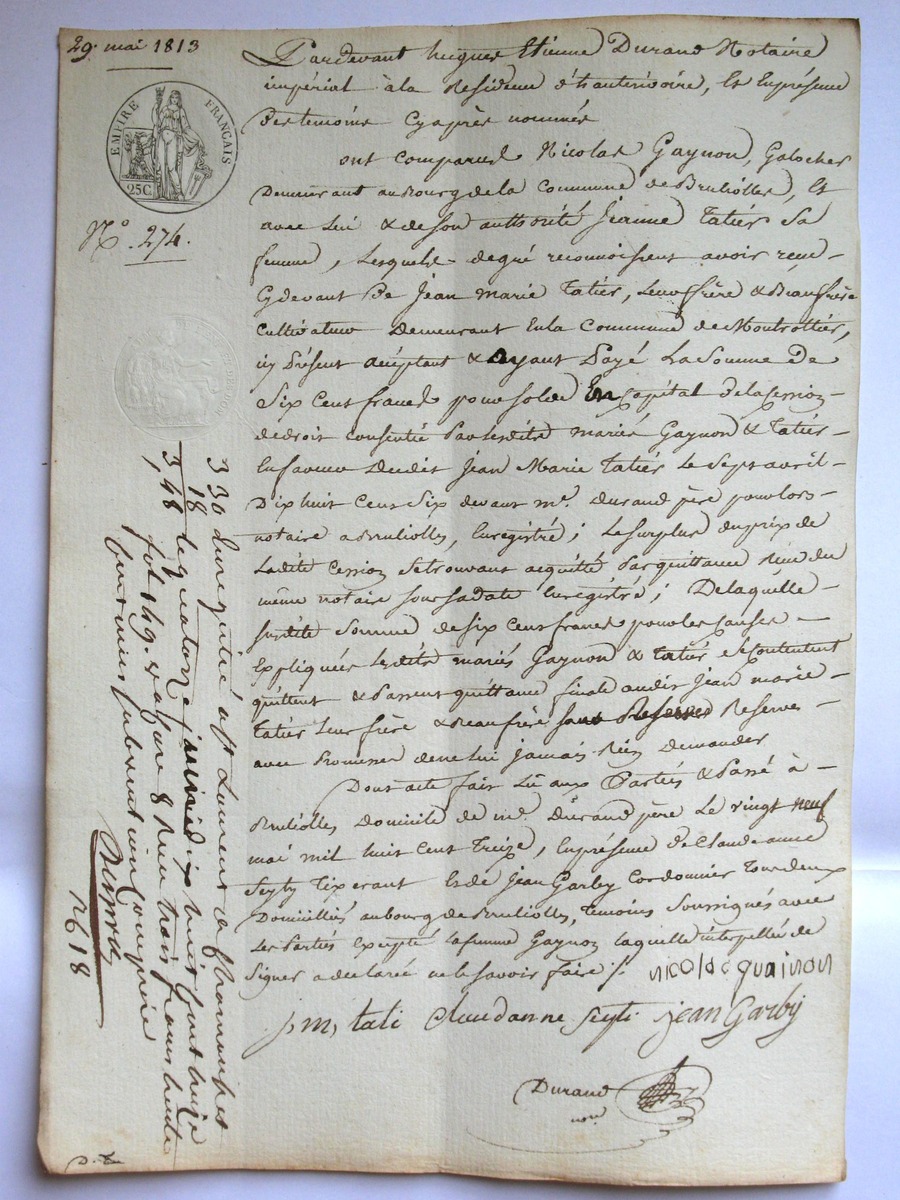 29. mai 1813
EMPIRE FRANÇAIS
25C.
N.° 274.
Pardevant hugues Etienne Durand Notaire
impérial à la Residence d'hauterivoire, Et Enprésence
Des temoins Cyaprès nommés
ont comparus Nicolas Gaynon, Galocher
Demeurant aubourg de la Commune de Bruliolles, Et
avec Lui & de son authorité Jeanne Tatier Sa
femme, Lesquels de gré reconnoissent avoir reçu
Cydevant De Jean Marie Tatier, Leur frère & Beaufrère
Cultivateur Demeurant En la Commune de Montrottier,
icy Présent acceptant & ayant Payé La Somme De
Six Cent francs pour solde En Capital De la Cession
de droits Consentie Par lesdits mariés Gaynon & Tatier
En faveur Dudit Jean Marie Tatier Le Sept avril
Dix huit Cent Six devant m.e Durand père pour lors
notaire a Brulliolles, Enregistré; Le Surplus du prix de
Ladite Cession Se trouvant acquitté Par quittance Reçu du
même notaire sous sa date Enregistré; De laquelle
susdite Somme de six Cent francs pour les Causes
Expliquées Lesdits mariés Gaynon & tatier Se Contentent
quittent & Passent quittance finale audit Jean marie
tatier Leur frère & Beaufrère sans Reserves
avec Promesse de ne lui Jamais Rien Demander
Dont acte fait Lu aux Parties & Passé à
Brulliolles Domicile de m.e Durand père Le vingt neuf
mai mil huit Cent Treize, En présence de Claude anne
Seyty Tixerant Et de Jean Garby Cordonnier Tous deux
Domiciliés aubourg de Brulliolles, temoins Soussignés avec
Les Parties Excepté La femme Gaynon laquelle interpellée de
Signer a declaré ne le Savoir faire /.
nicolas quainon
j m, tati claudanne seyti jean Garby
Durand
no.re
3 30 Enregistré à St Laurent de Chamousset
18 le quatorze juin mil huit cent treize
3 48 fol 149. case 8 Reçu trois francs trente
centimes subvention comprise
2618